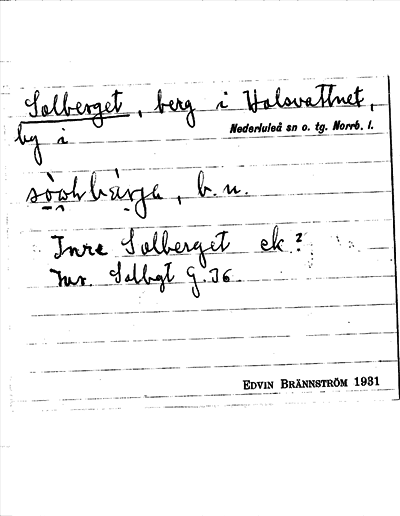 Solberget, berg i Holsvattnet,
by i Nederluleå sn o. tg. Norrb. l.
b. n.
Inre Solberget ek.?
Inr. Solbgt G. 36
EDVIN BRÄNNSTRÖM 1931